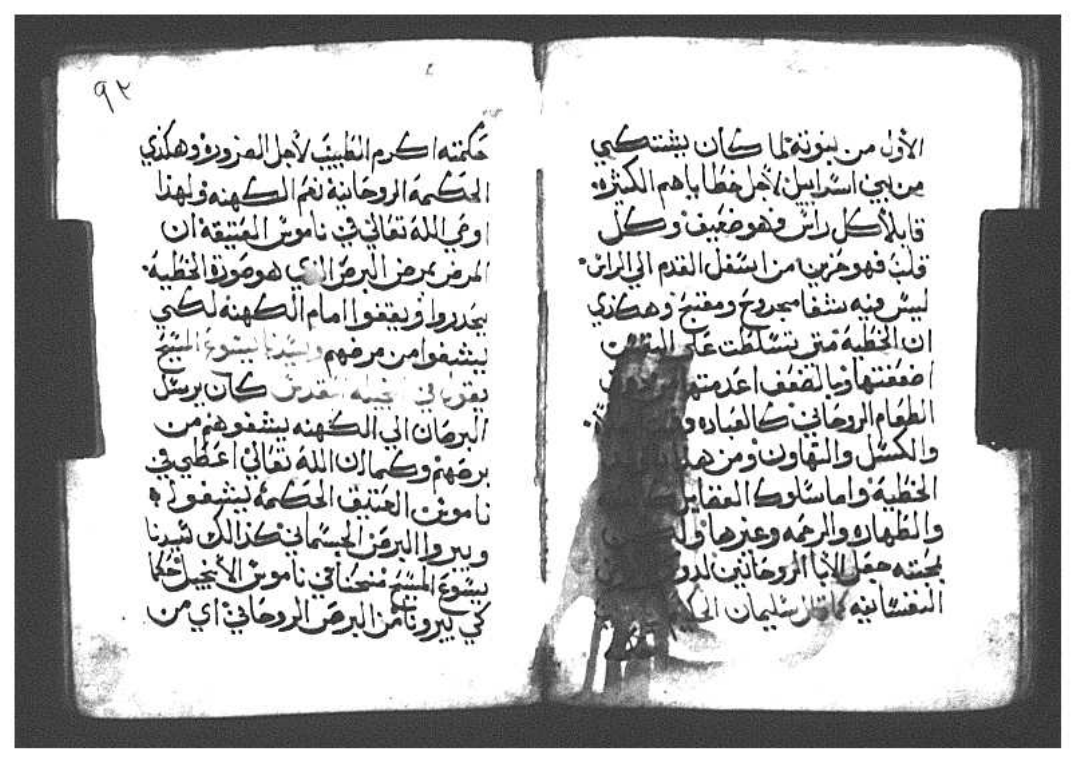 الأول من بنوته لما كان يشتكي
من بني اسراييل لأجل خطاياهم الكثيره
قايلاً كل راس فهو ضعيف وكل
قلب فهو حزين من اسفل القدم الي الراس
ليس فيه شفا مجروح ومفتح وهكذي
ان الخطية متي تسلطت علي
اضعفتها وبالضعف اعدمتها
الطعام الروحاني كالعباده
والكسل والتهاون ومن
الخطية واما سلوك الفضايل
والطهاره والرحمه وغيرها
بمحبته جعل الابا الروحانيين
النفسانيه كما قال سليمان
٩٢
حكمته اكرم الطبيب لأجل الضروره وهكذي
الحكمة الروحانية نعم الكهنه ولهذا
اوصي الله تعالي في ناموس العتيقة ان
المرض بمرض البرص الذي هو صورة الخطية
يحدروا ويقفوا امام الكهنه لكي
ليشفوا من مرضهم وسيدنا يسوع المسيح
يقول في انجيله المقدس كان يرسل
البرصان الي الكهنه يشفوهم من
برصهم وكما ان الله تعالي اعطي في
ناموس العتيق الحكمة ليشفوا
ويبروا البرص الجسماني كذالك سيدنا
يسوع المسيح منحنا في ناموس الأنجيل حكما
كي يبرونا من البرص الروحاني اي من